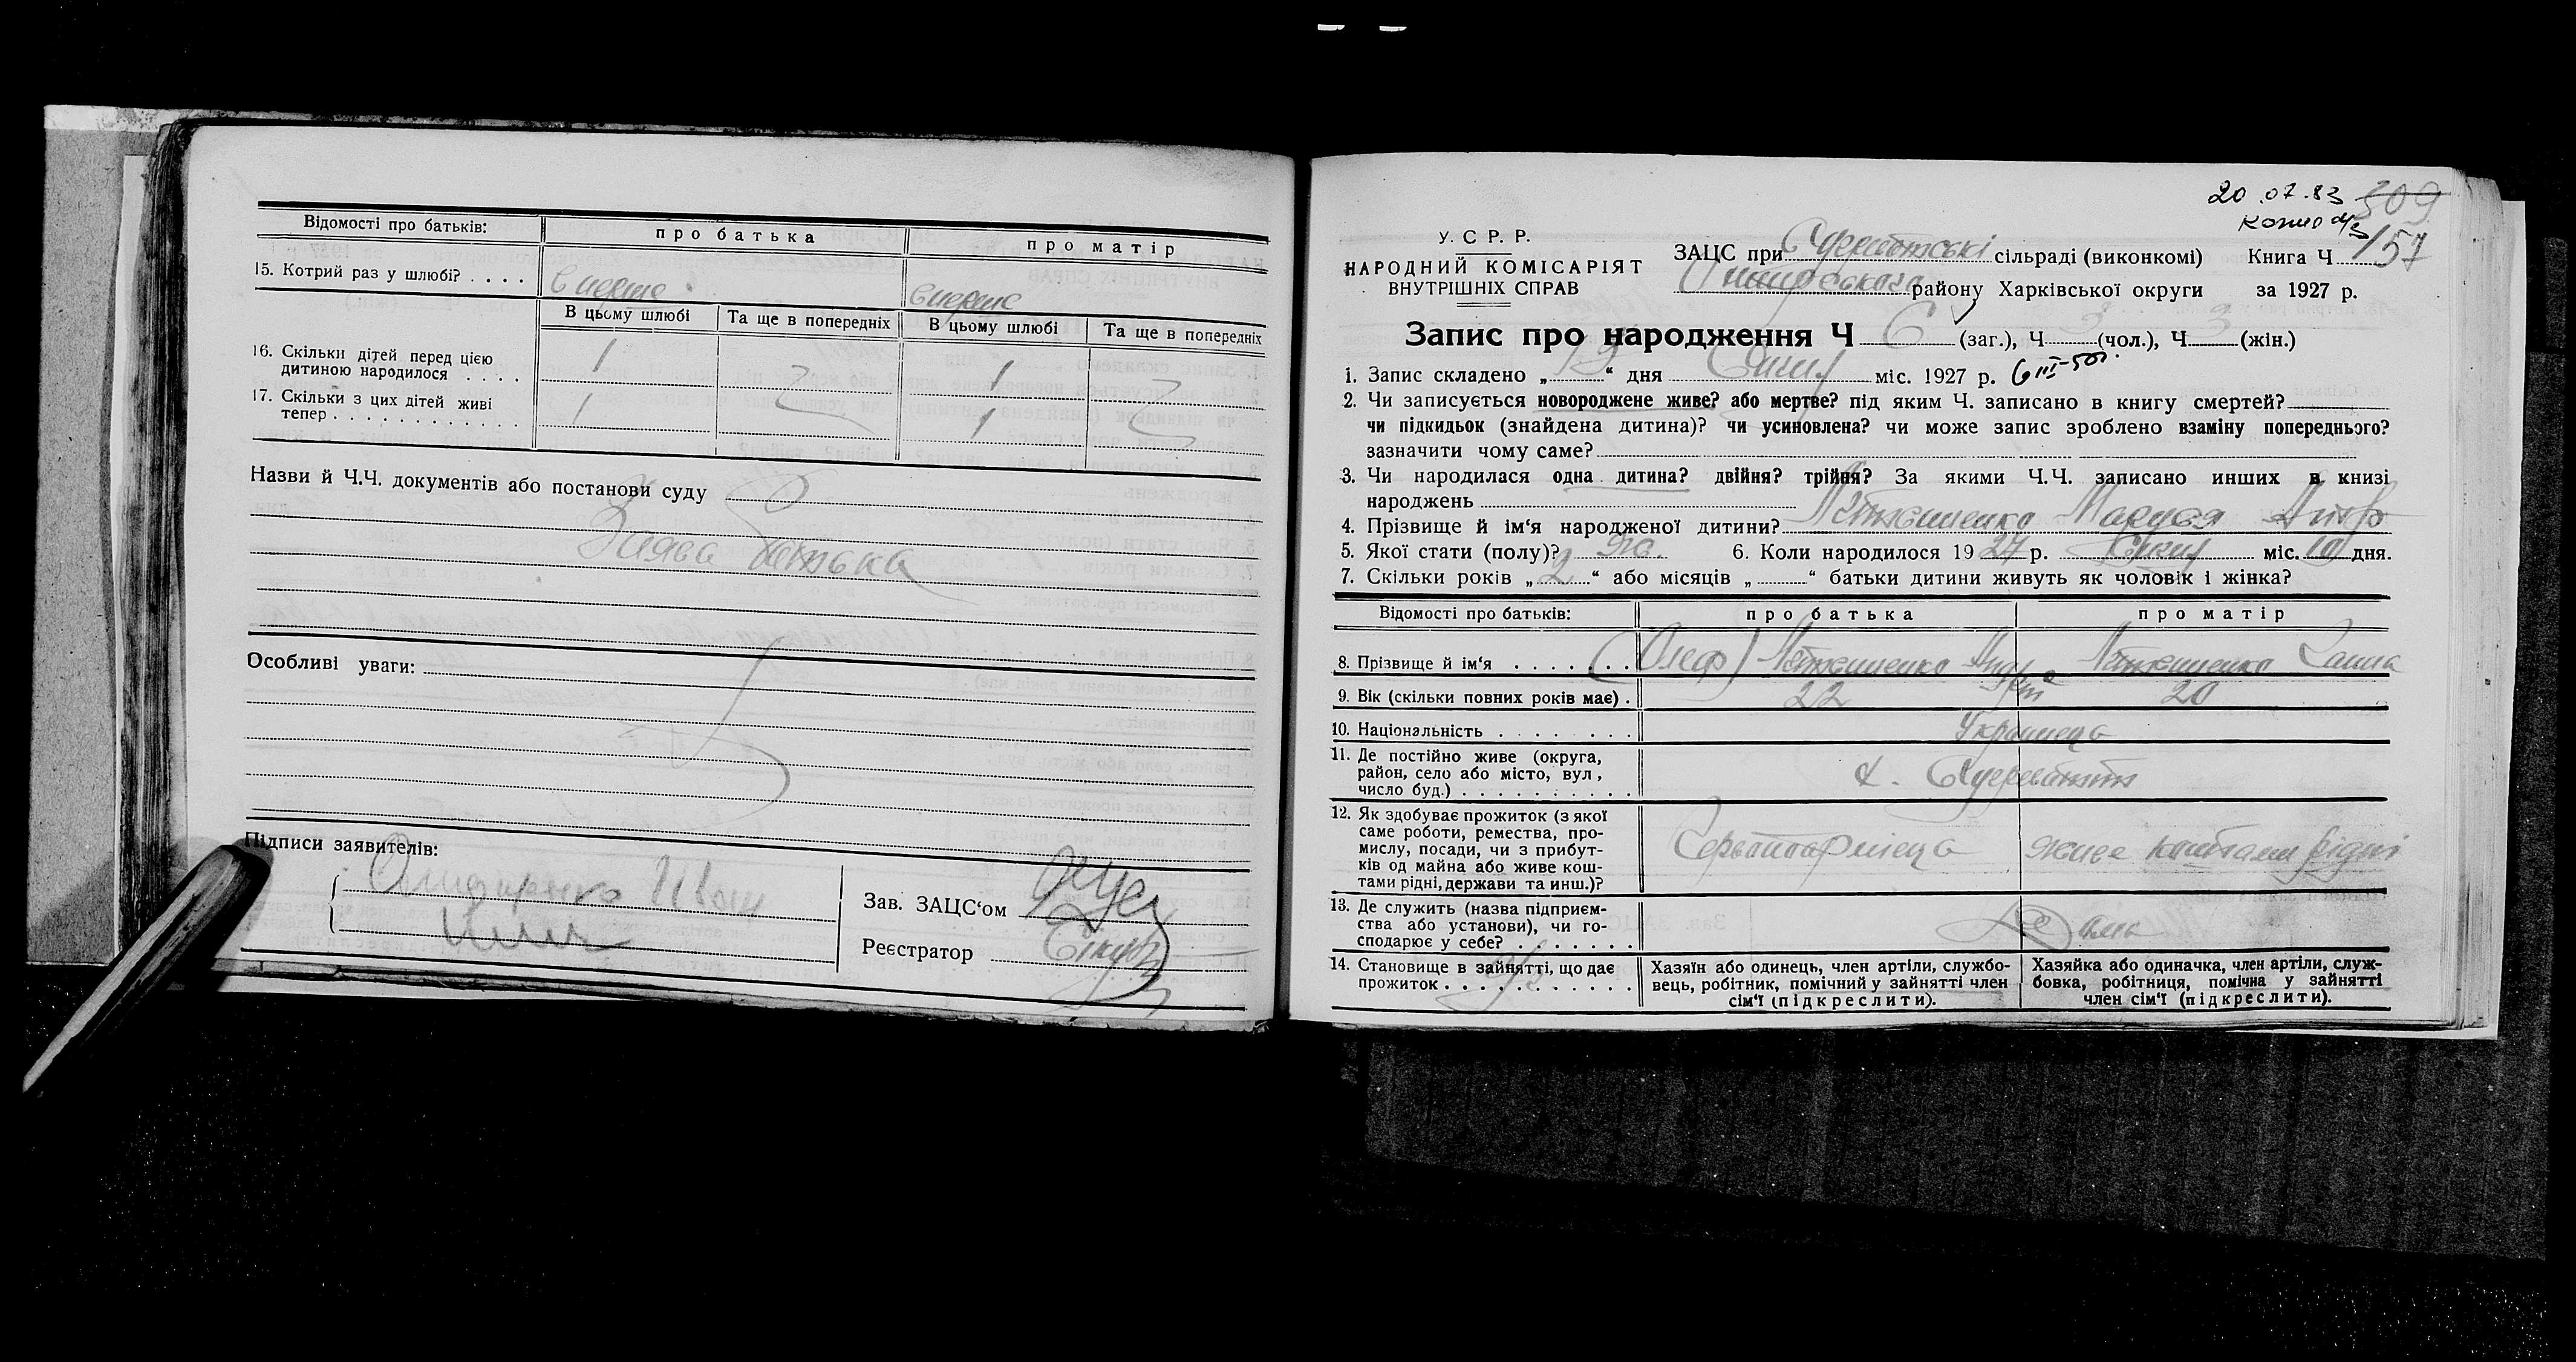 Відомості про батьків: про батька про матір
15. Котрий раз у шлюбі? . . . . вперше вперше
В цьому шлюбі Та ще в попередніх В цьому шлюбі Та ще в попередніх
16. Скільки дітей перед цією
дитиною народилося . . . . 1 1
17. Скільки з цих дітей живі
тепер . . . . . . . . . . . . 1 1
Назви й Ч.Ч. документів або постанови суду
Заява батька
Особливі уваги:
Підписи заявителів:
Іван
Зав. ЗАЦС‘ом
Реєстратор
20.07.83 309
157
У. С. Р. Р.
НАРОДНИЙ КОМІСАРІЯТ
ВНУТРІШНІХ СПРАВ
ЗАЦС при сільраді (виконкомі) Книга Ч
району Харківської округи за 1927 р.
Запис про народження Ч 6 (заг.), Ч (чол.), Ч 3 (жін.)
1. Запис складено „ “ дня Січня міс. 1927 р.
2. Чи записується новороджене живе? або мертве? під яким Ч. записано в книгу смертей?
чи підкидьок (знайдена дитина)? чи усиновлена? чи може запис зроблено взаміну попереднього?
зазначити чому саме?
3. Чи народилася одна дитина? двійня? трійня? За якими Ч.Ч. записано инших в книзі
народжень
4. Прізвище й ім‘я народженої дитини? Маруся
5. Якої стати (полу)? жіо. 6. Коли народилося 19 27 р. Січня міс. 10 дня.
7. Скільки років „ 2 “ або місяців „ “ батьки дитини живуть як чоловік і жінка?
Відомості про батьків: про батька про матір
8. Прізвище й ім‘я . . . . . . .
9. Вік (скільки повних років має) . 22 20
10. Національність . . . . . . . . Українець
11. Де постійно живе (округа,
район, село або місто, вул,
число буд.) . . . . . . . . . .
12. Як здобуває прожиток (з якої
саме роботи, ремества, про-
мислу, посади, чи з прибут-
ків од майна або живе кош-
тами рідні, держави та инш.)? Червоноармієць живе коштами рідні
13. Де служить (назва підприєм-
ства або установи), чи го-
сподарює у себе? . . . . . . .
14. Становище в зайнятті, що дає
прожиток . . . . . . . . . . .
Хазяїн або одинець, член артіли, службо-
вець, робітник, помічний у зайнятті член
сім‘ї (підкреслити).
Хазяйка або одиначка, член артіли, служ-
бовка, робітниця, помічна у зайнятті
член сім‘ї (підкреслити).